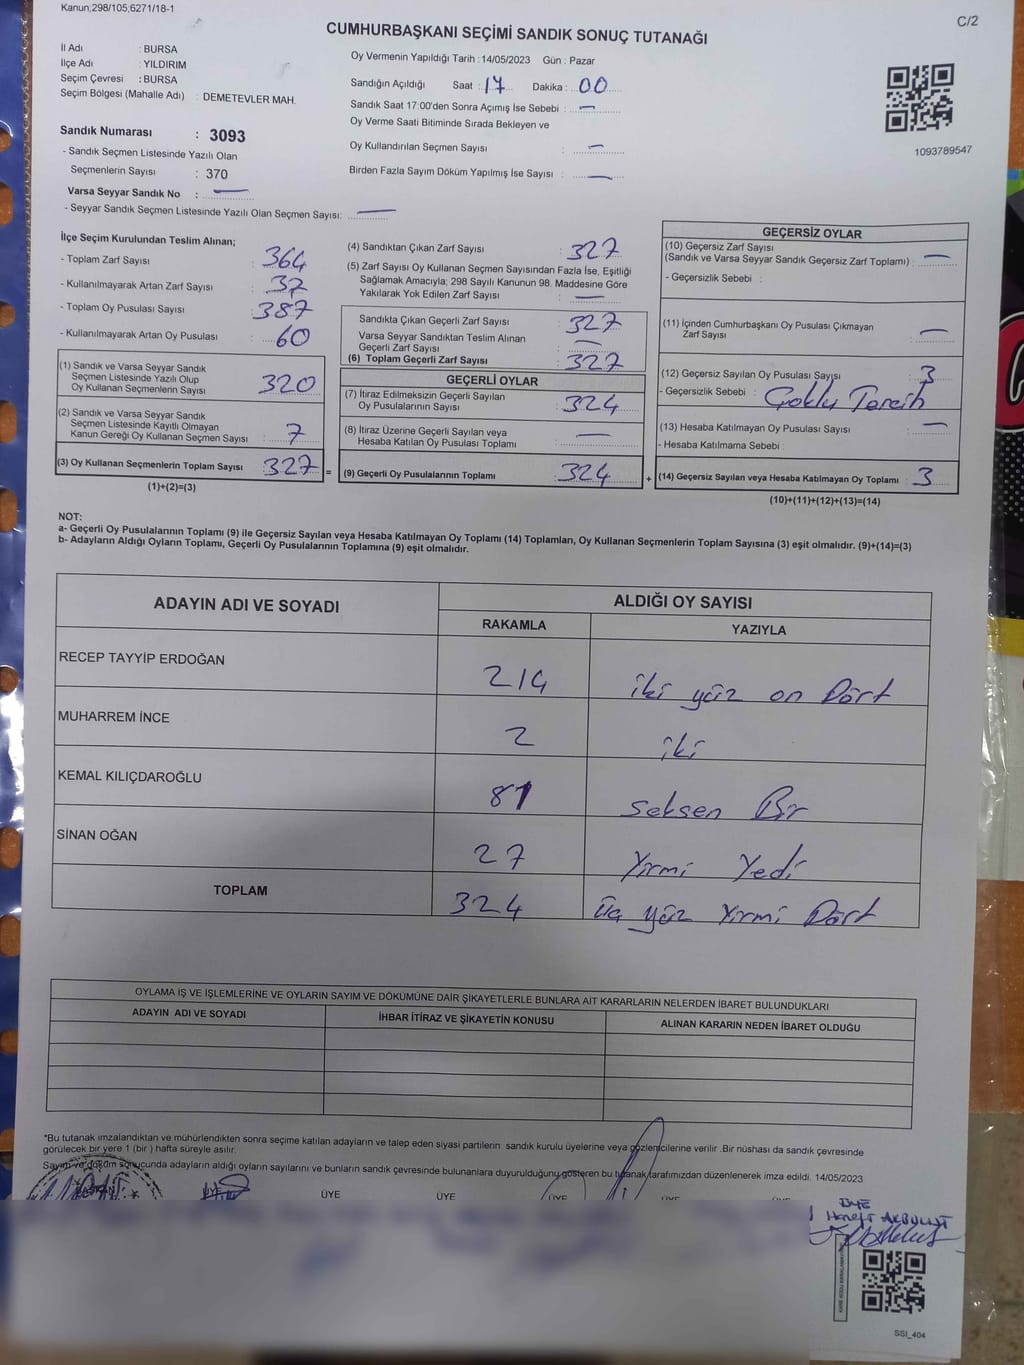 Kanun;298/105;6271/18-1
C/2
CUMHURBAŞKANI SEÇİMİ SANDIK SONUÇ TUTANAĞI
İl Adı : BURSA
İlçe Adı : YILDIRIM
Seçim Çevresi : BURSA
Seçim Bölgesi (Mahalle Adı) : DEMETEVLER MAH.
Sandık Numarası : 3093
- Sandık Seçmen Listesinde Yazılı Olan
Seçmenlerin Sayısı : 370
Varsa Seyyar Sandık No : —
- Seyyar Sandık Seçmen Listesinde Yazılı Olan Seçmen Sayısı: —
Oy Vermenin Yapıldığı Tarih : 14/05/2023 Gün : Pazar
Sandığın Açıldığı Saat : 17 Dakika : 00
Sandık Saat 17:00'den Sonra Açımış İse Sebebi : —
Oy Verme Saati Bitiminde Sırada Bekleyen ve
Oy Kullandırılan Seçmen Sayısı : —
Birden Fazla Sayım Döküm Yapılmış İse Sayısı : —
1093789547
İlçe Seçim Kurulundan Teslim Alınan;
- Toplam Zarf Sayısı : 364
- Kullanılmayarak Artan Zarf Sayısı : 37
- Toplam Oy Pusulası Sayısı : 387
- Kullanılmayarak Artan Oy Pusulası : 60
(1) Sandık ve Varsa Seyyar Sandık
Seçmen Listesinde Yazılı Olup
Oy Kullanan Seçmenlerin Sayısı : 320
(2) Sandık ve Varsa Seyyar Sandık
Seçmen Listesinde Kayıtlı Olmayan
Kanun Gereği Oy Kullanan Seçmen Sayısı : 7
(3) Oy Kullanan Seçmenlerin Toplam Sayısı : 327
(1)+(2)=(3)
(4) Sandıktan Çıkan Zarf Sayısı : 327
(5) Zarf Sayısı Oy Kullanan Seçmen Sayısından Fazla İse, Eşitliği
Sağlamak Amacıyla; 298 Sayılı Kanunun 98. Maddesine Göre
Yakılarak Yok Edilen Zarf Sayısı : —
Sandıkta Çıkan Geçerli Zarf Sayısı : 327
Varsa Seyyar Sandıktan Teslim Alınan
Geçerli Zarf Sayısı : —
(6) Toplam Geçerli Zarf Sayısı : 327
GEÇERLİ OYLAR
(7) İtiraz Edilmeksizin Geçerli Sayılan
Oy Pusulalarının Sayısı : 324
(8) İtiraz Üzerine Geçerli Sayılan veya
Hesaba Katılan Oy Pusulası Toplamı : —
= (9) Geçerli Oy Pusulalarının Toplamı : 324
GEÇERSİZ OYLAR
(10) Geçersiz Zarf Sayısı
(Sandık ve Varsa Seyyar Sandık Geçersiz Zarf Toplamı) : —
- Geçersizlik Sebebi :
(11) İçinden Cumhurbaşkanı Oy Pusulası Çıkmayan
Zarf Sayısı : —
(12) Geçersiz Sayılan Oy Pusulası Sayısı : 3
- Geçersizlik Sebebi : Çoklu Tercih
(13) Hesaba Katılmayan Oy Pusulası Sayısı : —
- Hesaba Katılmama Sebebi :
+ (14) Geçersiz Sayılan veya Hesaba Katılmayan Oy Toplamı : 3
(10)+(11)+(12)+(13)=(14)
NOT:
a- Geçerli Oy Pusulalarının Toplamı (9) ile Geçersiz Sayılan veya Hesaba Katılmayan Oy Toplamı (14) Toplamları, Oy Kullanan Seçmenlerin Toplam Sayısına (3) eşit olmalıdır. (9)+(14)=(3)
b- Adayların Aldığı Oyların Toplamı, Geçerli Oy Pusulalarının Toplamına (9) eşit olmalıdır.
ADAYIN ADI VE SOYADI ALDIĞI OY SAYISI
RAKAMLA YAZIYLA
RECEP TAYYİP ERDOĞAN 214 iki yüz on Dört
MUHARREM İNCE 2 iki
KEMAL KILIÇDAROĞLU 81 seksen Bir
SİNAN OĞAN 27 Yirmi Yedi
TOPLAM 324 üç yüz Yirmi Dört
OYLAMA İŞ VE İŞLEMLERİNE VE OYLARIN SAYIM VE DÖKÜMÜNE DAİR ŞİKAYETLERLE BUNLARA AİT KARARLARIN NELERDEN İBARET BULUNDUKLARI
ADAYIN ADI VE SOYADI İHBAR İTİRAZ VE ŞİKAYETİN KONUSU ALINAN KARARIN NEDEN İBARET OLDUĞU
*Bu tutanak imzalandıktan ve mühürlendikten sonra seçime katılan adayların ve talep eden siyasi partilerin sandık kurulu üyelerine veya gözlemcilerine verilir .Bir nüshası da sandık çevresinde
görülecek bir yere 1 (bir ) hafta süreyle asılır.
Sayım ve döküm sonucunda adayların aldığı oyların sayılarını ve bunların sandık çevresinde bulunanlara duyurulduğunu gösteren bu tutanak tarafımızdan düzenlenerek imza edildi. 14/05/2023
BAŞKAN ÜYE ÜYE ÜYE ÜYE ÜYE ÜYE
ÜYE
AKBULUT
SSI_404